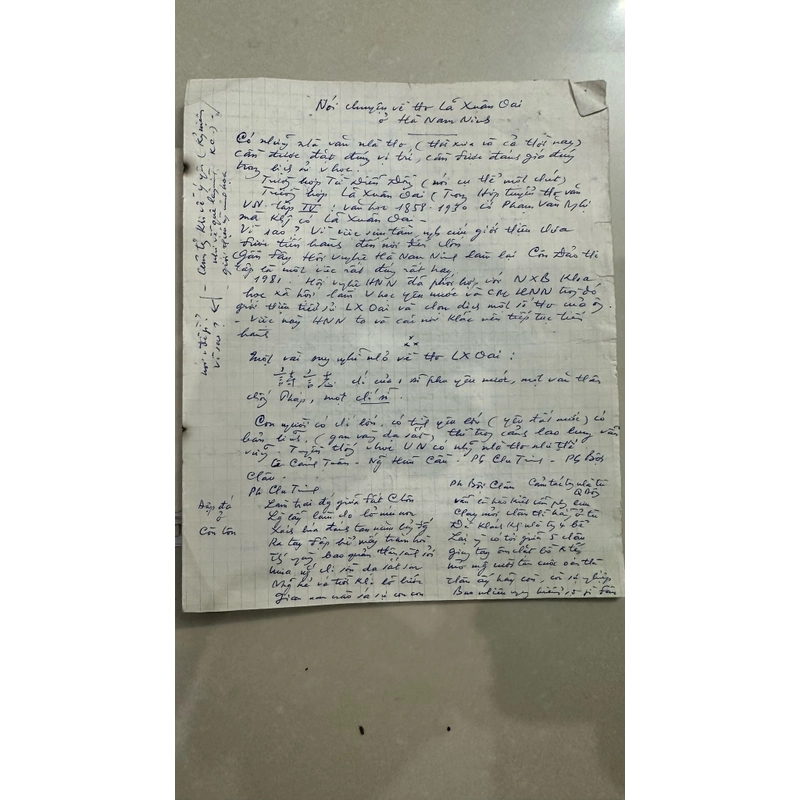 Nói chuyện về thơ Lã Xuân Oai
ở Hà Nam Ninh
Có những nhà văn nhà thơ, (thời xưa và cả thời nay)
cần được đặt đúng vị trí, cần được đánh giá đúng
trong lịch sử v học.
Trường hợp Từ Diễn Đồng (nói cụ thể một chút)
Trường hợp Lã Xuân Oai (Trong Hợp tuyển thơ văn
VN tập IV: văn học 1858-1930 có Phạm Văn Nghị
mà không có Lã Xuân Oai -
Vì sao? Vì việc sưu tầm, ngh cứu giới thiệu chưa
được tiến hành đến nơi đến chốn.
Gần đây Hội v nghệ Hà Nam Ninh làm lại Côn Đảo thi
tập là một việc rất đúng rất hay.
1981. Hội v nghệ HNN đã phối hợp với NXB Khoa
học xã hội làm V học yêu nước và CM HNN trong đó
giới thiệu tiểu sử LX Oai và chọn dịch một số thơ của ông
- Việc này HNN ta và các nơi khác nên tiếp tục tiến
hành
Một vài suy nghĩ nhỏ về thơ LX Oai:
của 1 sĩ phu yêu nước, một văn thân
chống Pháp, một chí sĩ.
Con người có chí lớn, có tình yêu lớn (yêu đất nước) có
bản lĩnh, (gan vàng dạ sắt) thì trong cảnh lao lung vẫn
vững. Truyền thống v học VN có những nhà thơ như thế
Lê Cảnh Tuân - Ng Hữu Cầu - Ph Chu Trinh - Ph Bội
Châu -
Ph Chu Trinh
Đập đá
ở
Côn Lôn
Làm trai đứng giữa đất Côn Lôn
Lừng lẫy làm cho lở núi non
Xách búa đánh tan năm bảy đống
Ra tay đập bể mấy trăm hòn
Tháng ngày bao quản thân sành sỏi
Mưa nắng chi sờn dạ sắt son
Những kẻ vá trời khi lỡ bước
Gian nan nào sá sự con con
Ph Bội Châu Cảm tác trong nhà tù
QĐông
Vẫn là hào kiệt vẫn phong lưu
Chạy mỏi chân thì hãy ở tù
Đã khách không nhà trong 4 bể
Lại người có tội giữa 5 châu
Giang tay ôm chặt bồ k tế
Mở miệng cười tan cuộc oán thù
Thân ấy hãy còn, còn sự nghiệp
Bao nhiêu nguy hiểm sợ gì đâu